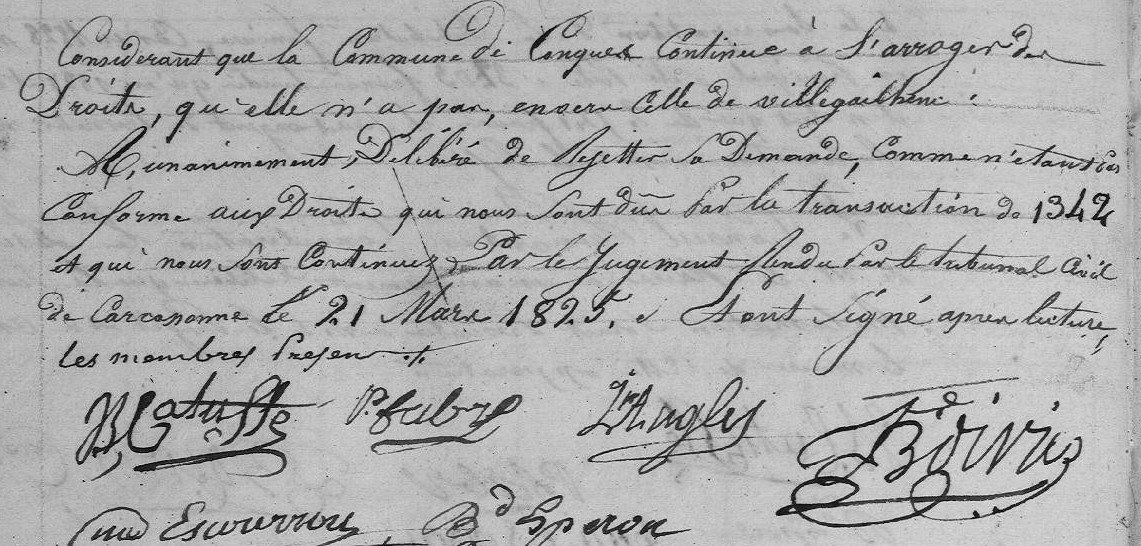 Considerant que la Commune de Conques Continue à S'arroger des
Droits, qu'elle n'a pas, envers Celle de villegailhenc :
A, unanimement, Délibéré de Rejetter Sa Demande, Comme n'étant pas
Conforme aux Droits qui nous Sont dûs Par la transaction de 1342
et qui nous Sont Continuez Par le Jugement Rendu Par le tribunal Civil
de Carcasonne Le 21 Mars 1825. Et ont Signé apres lecture,
les membres Presens ./.
B, Catuffe P. fabre Angles Boivin
Escourrou Bd Speron